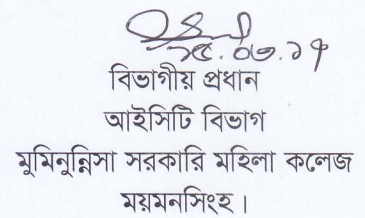 ২৫.০৩.১৭
বিভাগীয় প্রধান
আইসিটি বিভাগ
মুমিনুন্নিসা সরকারি মহিলা কলেজ
ময়মনসিংহ।